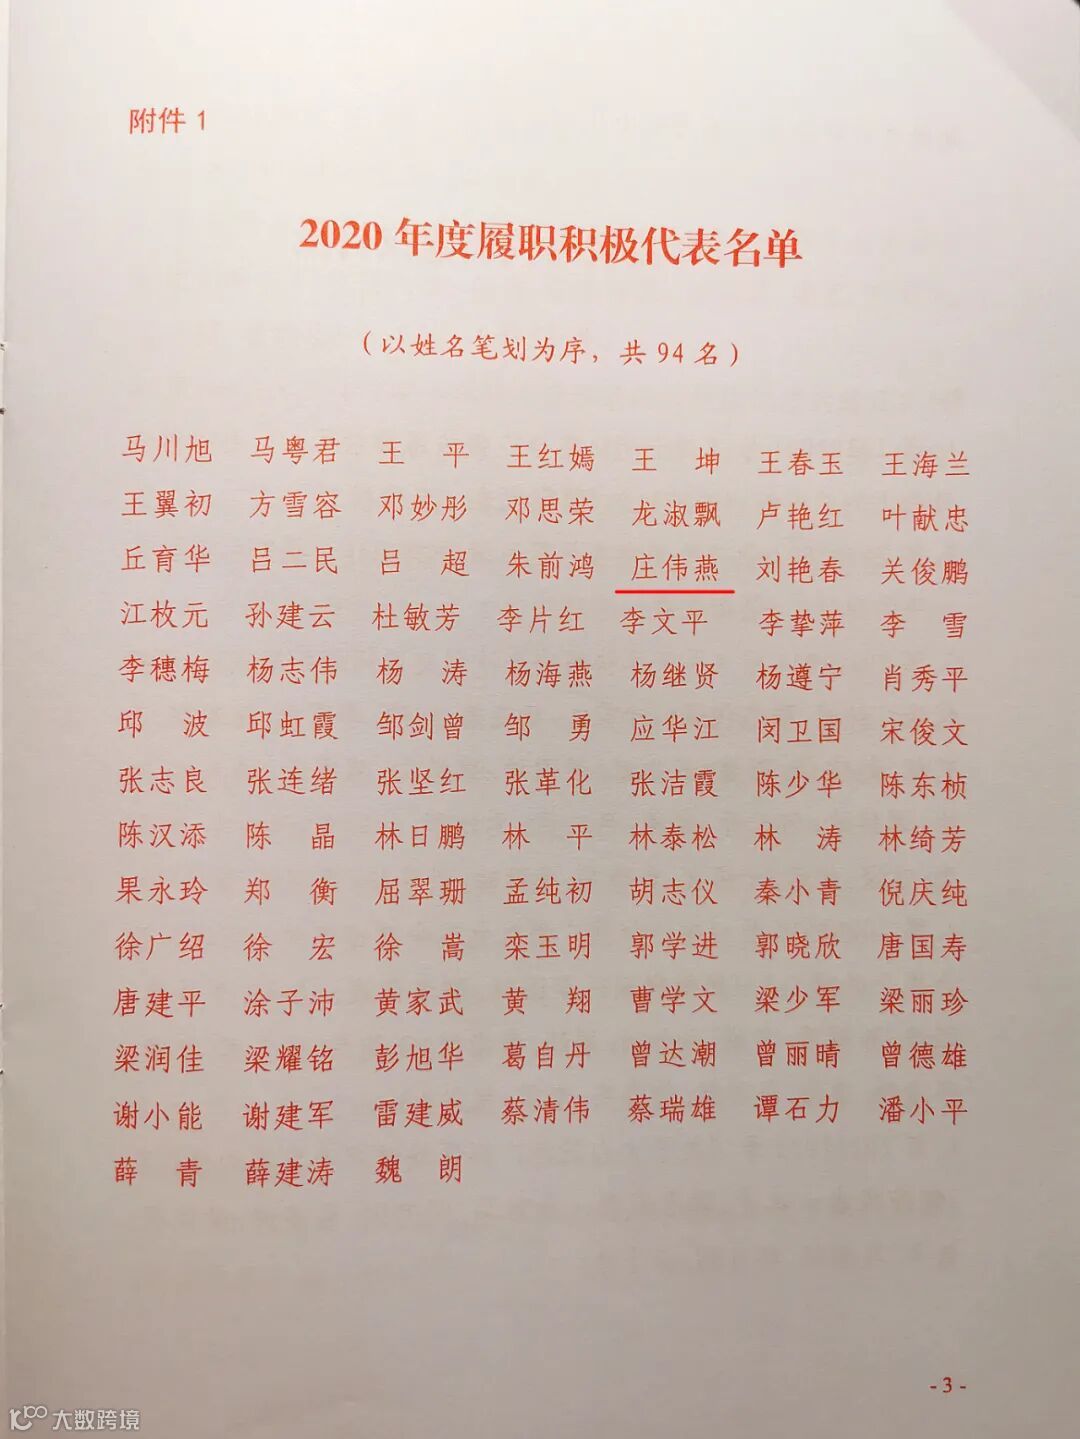 附件 1
2020 年度履职积极代表名单
（以姓名笔划为序，共 94 名）
马川旭 马粤君 王 平 王红嫣 王 坤 王春玉 王海兰
王翼初 方雪容 邓妙彤 邓思荣 龙淑飘 卢艳红 叶献忠
丘育华 吕二民 吕 超 朱前鸿 庄伟燕 刘艳春 关俊鹏
江枚元 孙建云 杜敏芳 李片红 李文平 李挚萍 李 雪
李穗梅 杨志伟 杨 涛 杨海燕 杨继贤 杨遵宁 肖秀平
邱 波 邱虹霞 邹剑曾 邹 勇 应华江 闵卫国 宋俊文
张志良 张连绪 张坚红 张革化 张洁霞 陈少华 陈东桢
陈汉添 陈 晶 林日鹏 林 平 林泰松 林 涛 林绮芳
果永玲 郑 衡 屈翠珊 孟纯初 胡志仪 秦小青 倪庆纯
徐广绍 徐 宏 徐 嵩 栾玉明 郭学进 郭晓欣 唐国寿
唐建平 涂子沛 黄家武 黄 翔 曹学文 梁少军 梁丽珍
梁润佳 梁耀铭 彭旭华 葛自丹 曾达潮 曾丽晴 曾德雄
谢小能 谢建军 雷建威 蔡清伟 蔡瑞雄 谭石力 潘小平
薛 青 薛建涛 魏 朗
- 3 -
大数跨境